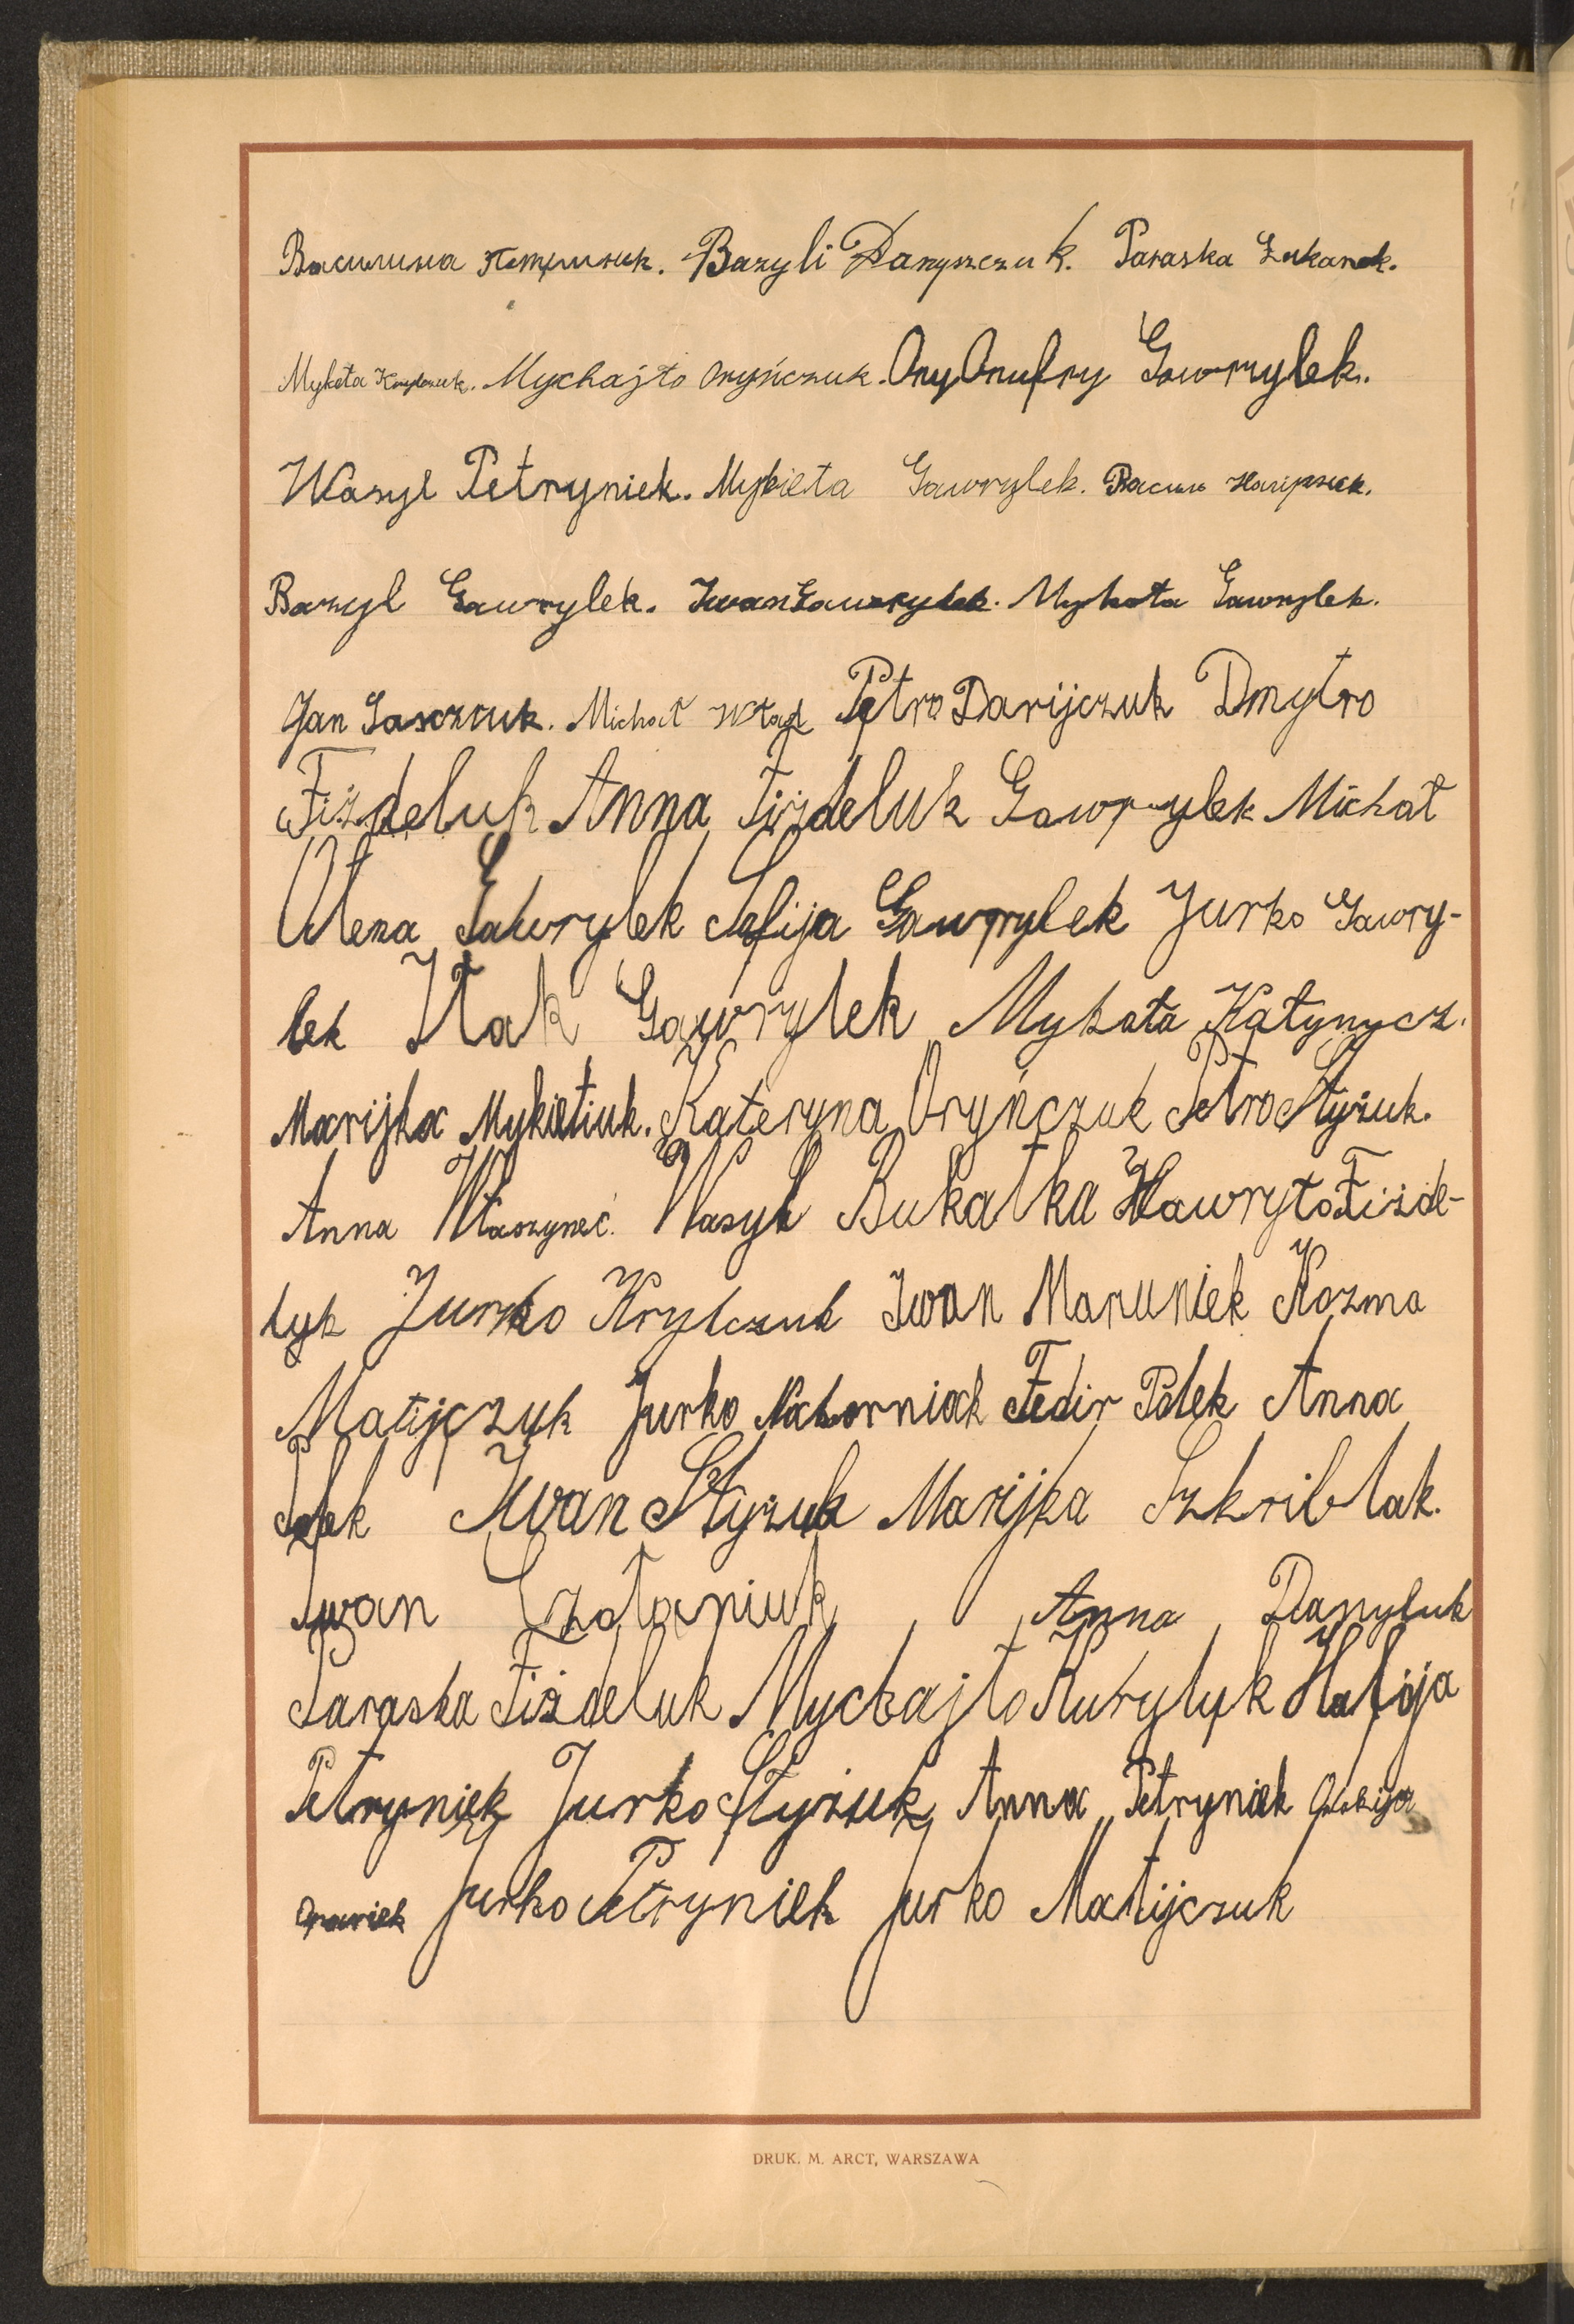 Василина Петринюк. Bazyli Daryszczuk. Paraska Łukanek.
Mykoła Krylczuk. Mychajło Oryńczuk. Ony Onufry Gawrylek.
Wasyl Petryniek. Mykieta Gawrylek. Васил
Bazyl Gawrylek. Iwan Gawrylek. Mykoła Gawrylek.
Jan Sawczuk. Michał Petro Darijczuk Dmytro
Fiżdeluk Anna Fiżdeluk Gawrylek Michał
Ołena Gawrylek Sofija Gawrylek Jurko Gawry-
lek Iłak Gawrylek Mykoła Katynycz.
Marijka Mykietiuk. Kateryna Oryńczuk Petro Styżuk.
Anna Właszyneć. Wasyl Bukatka Hawryło Fiżde-
lyk Jurko Krylczuk Iwan Maruniek Kozma
Matijczuk Jurko Naborniak Fedir Polek Anna
Polek Iwan Styżuk Marijka Szkriblak.
Iwan Czołaniuk, Anna, Danyluk
Paraska Fiżdeluk Mychajło Kurylyk Hafija
Petryniek Jurko Styżuk Anna Petryniek
Jurko Petryniek Jurko Matijczuk
DRUK. M. ARCT, WARSZAWA